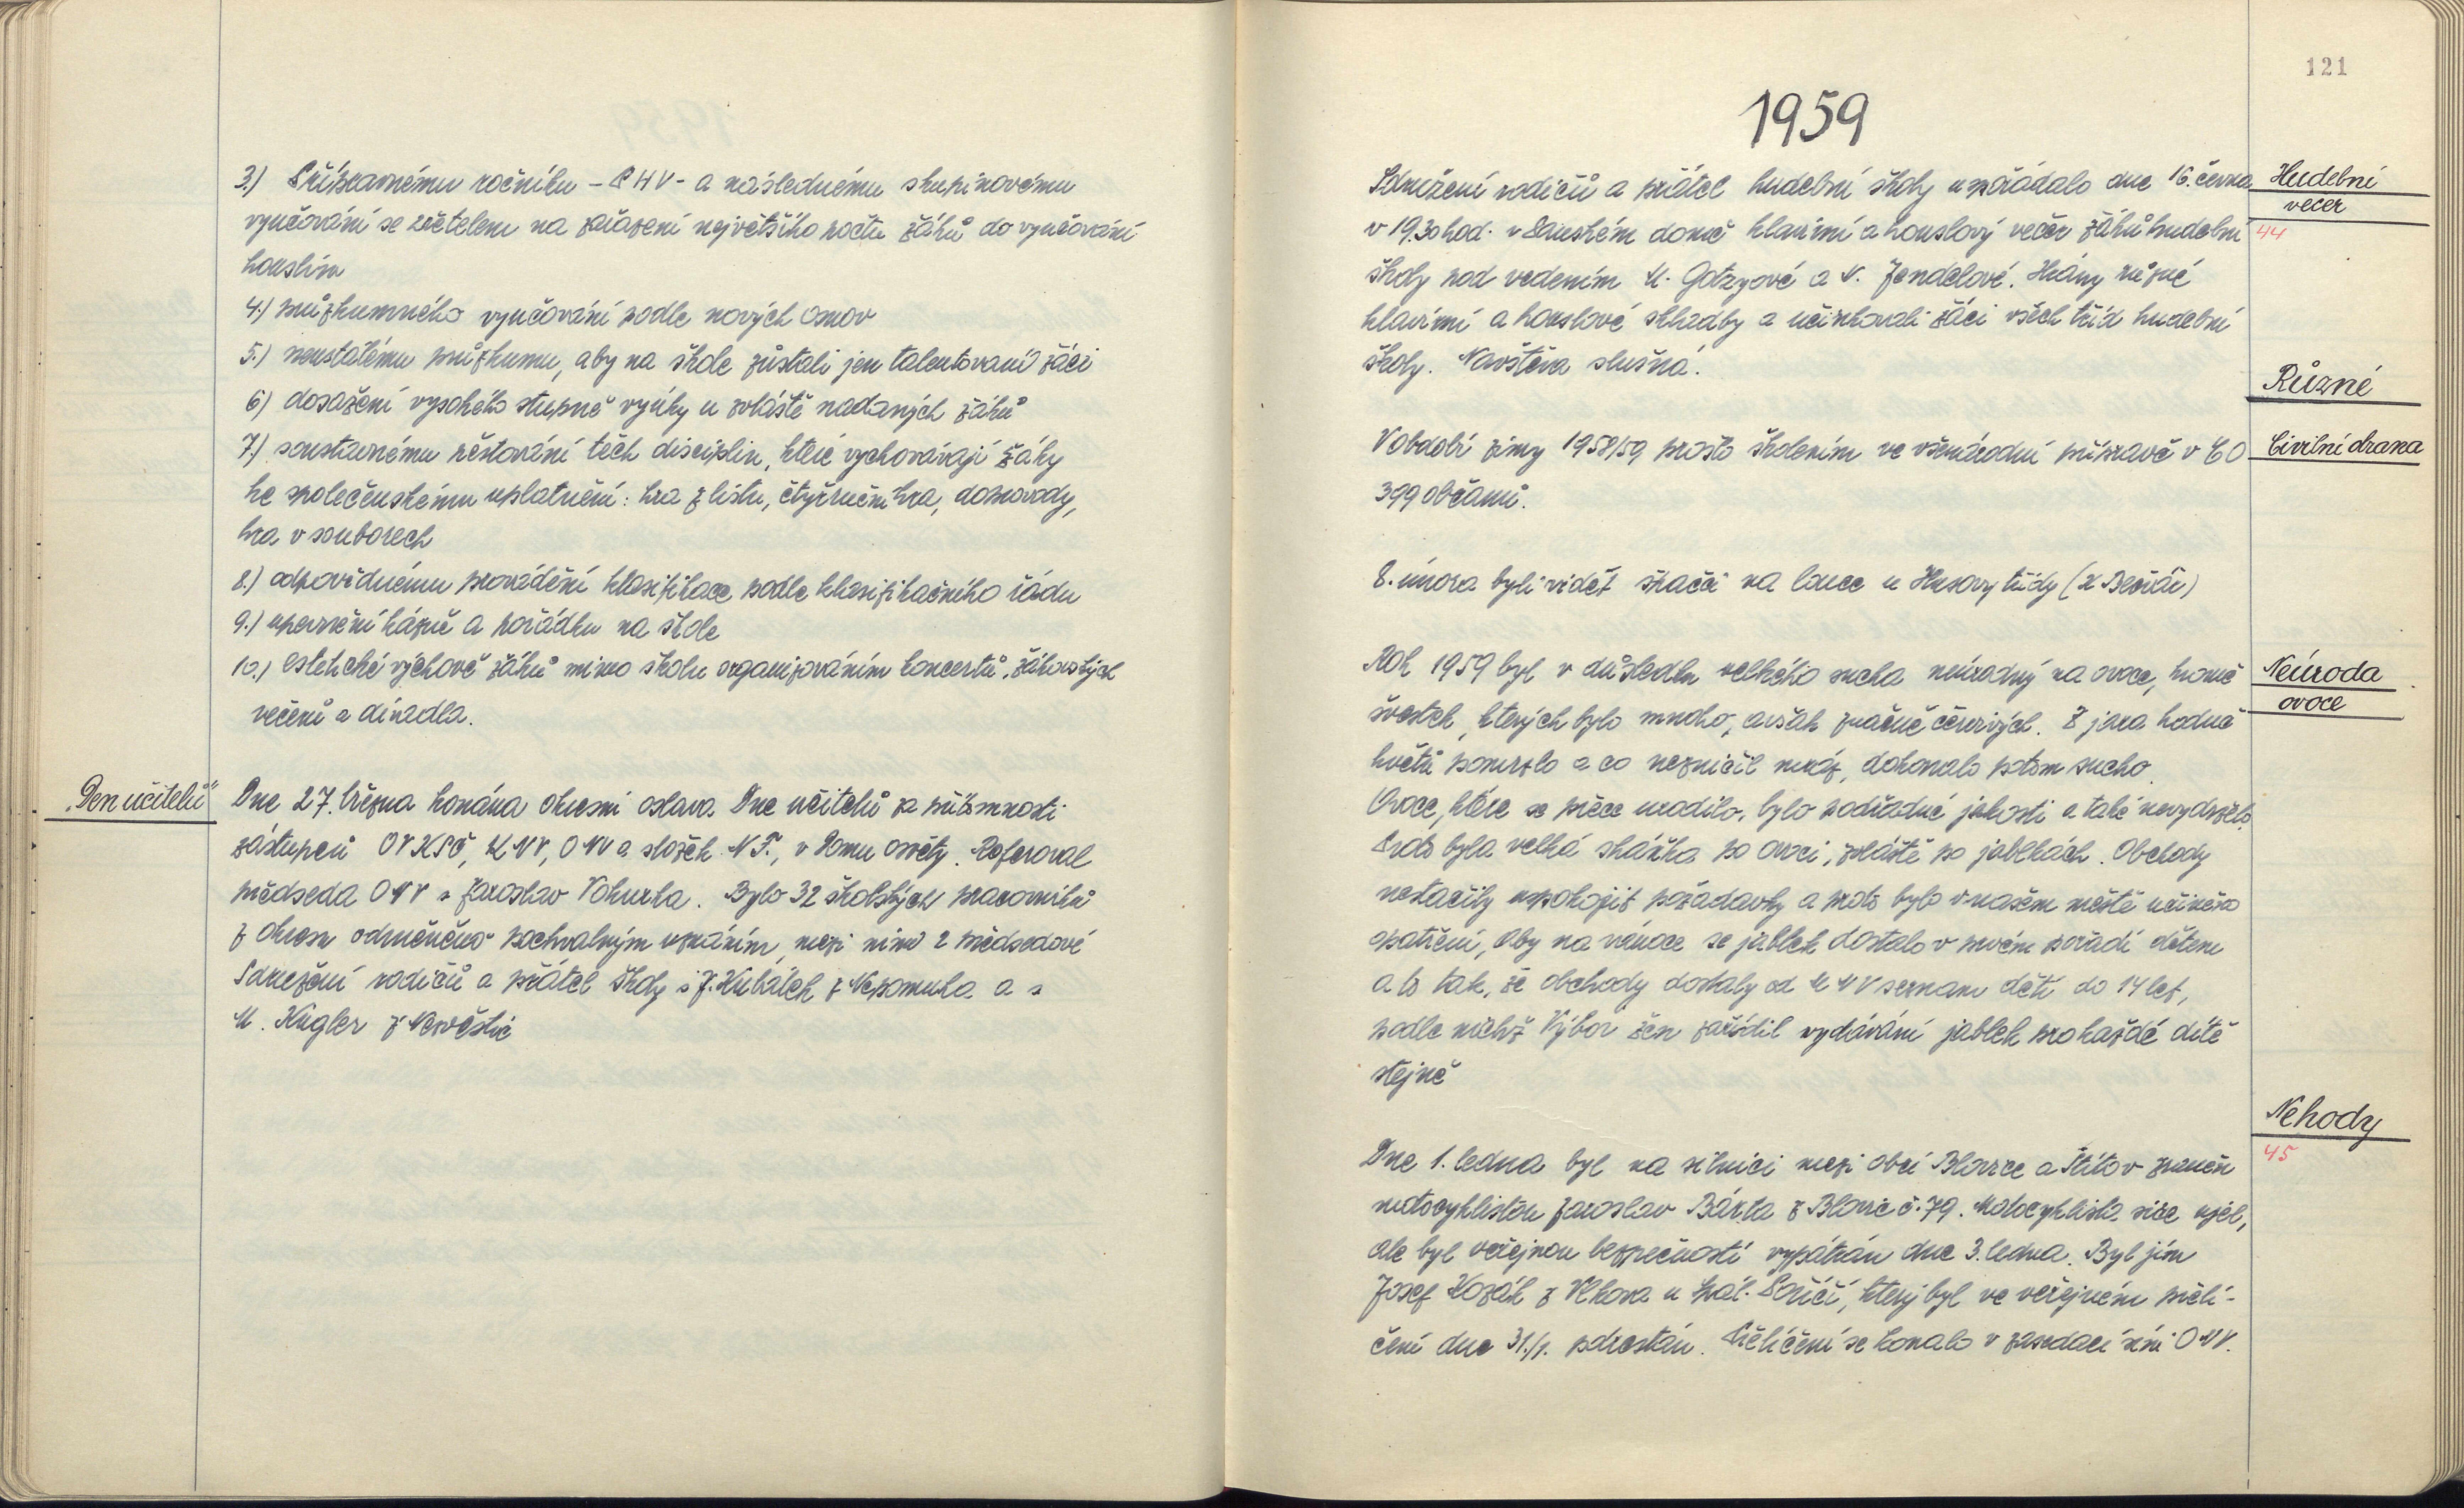 3.) Přípravnému ročníku – PHV – a následnému skupinovému
vyučování se zřetelem na zařazení největšího počtu žáků do vyučování
houslím
4.) průzkumného vyučování podle nových osnov
5.) neustálému průzkumu, aby na škole zůstali jen talentovaní žáci
6) dosažení vysokého stupně výuky u zvláště nadaných žáků
7.) soustavnému pěstování těch disciplin, které vychovávají žáky
ke společenskému uplatnění: hra z listu, čtyřruční hra, doprovody,
hra v souborech
8.) odpovědnému provádění klasifikace podle klasifikačního řádu
9.) upevnění kázně a pořádku na škole
10.) estetické výchově žáků mimo školu organizováním koncertů, žákovských
večerů a divadla.
„Den učitelů"
Dne 27. března konána okresní oslava Dne učitelů za přítomnosti
zástupců OV KSČ, KNV, ONV a složek N.F., v Domu osvěty. Referoval
předseda ONV s Jaroslav Vokurka. Bylo 32 školských pracovníků
z okresu odměněno pochvalným uznáním, mezi nimi 2 předsedové
Sdružení rodičů a přátel školy s J. Kubálek z Nepomuka a s
M. Kügler z Nezvěstic
121
1959
Sdružení rodičů a přátel hudební školy uspořádalo dne 16. června
v 19.30 hod. v Panském domě klavírní a houslový večer žáků hudební
školy pod vedením M. Gotzyové a V. Jendelové. Hrány různé
klavírní a houslové skladby a účinkovali žáci všech tříd hudební
školy. Návštěva slušná.
Hudební
večer
44
Různé
V období zimy 1958/59 prošlo školením ve všenárodní přípravě v CO
399 občanů.
Civilní obrana
8. února byli vidět špačci na louce u Husovy třídy (K Bečvář)
Rok 1959 byl v důsledku velkého sucha neúrodný na ovoce, kromě
švestek, kterých bylo mnoho, avšak značně červivých. Z jara hodně
květů pomrzlo a co nezničil mráz, dokonalo potom sucho.
Ovoce, které se přece urodilo, bylo podřadné jakosti a také nevydrželo.
Proto byla velká sháňka po ovoci, zvláště po jablkách. Obchody
nestačily uspokojit požadavky a proto bylo v našem městě učiněno
opatření, aby na vánoce se jablek dostalo v prvém pořadí dětem
a to tak, že obchody dostaly od MNV seznam dětí do 14 let,
podle nichž Výbor žen zařídil vydávání jablek pro každé dítě
stejně
Neúroda
ovoce
Nehody
45
Dne 1. ledna byl na silnici mezi obcí Blovice a Štítov zraněn
motocyklistou Jaroslav Bárta z Blovic č. 79. Motocyklista sice ujel,
ale byl veřejnou bezpečností vypátrán dne 3. ledna. Byl jím
Josef Kozák z Vlkova u Spál. Poříčí, který byl ve veřejném přelí-
čení dne 31./1. potrestán. Přelíčení se konalo v zasedací síni ONV.